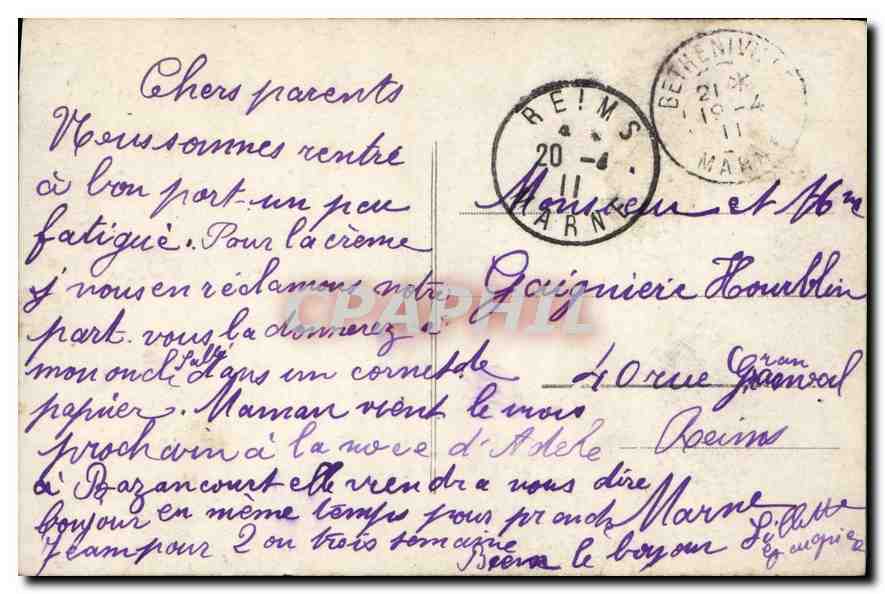 Chers parents
Nous sommes rentré
à bon port un peu
fatigué. Pour la crème
j vous en réclamons notre
part. vous la donnerez à
mon oncle dans un cornet de
papier. Maman vient le mois
prochain à la noce d'Adèle
à Bazancourt elle viendra vous dire
bonjour en même temps pour prendre
Jean pour 2 ou trois semaine
Bien le bonjour Lillette
REIMS
20 - 4
11
MARNE
BETHENIVILLE
21
19 - 4
11
MARNE
Monsieur et Mme
Gaignière Hourblin
40 rue Granval
Reims
Marne
CPAPHIL